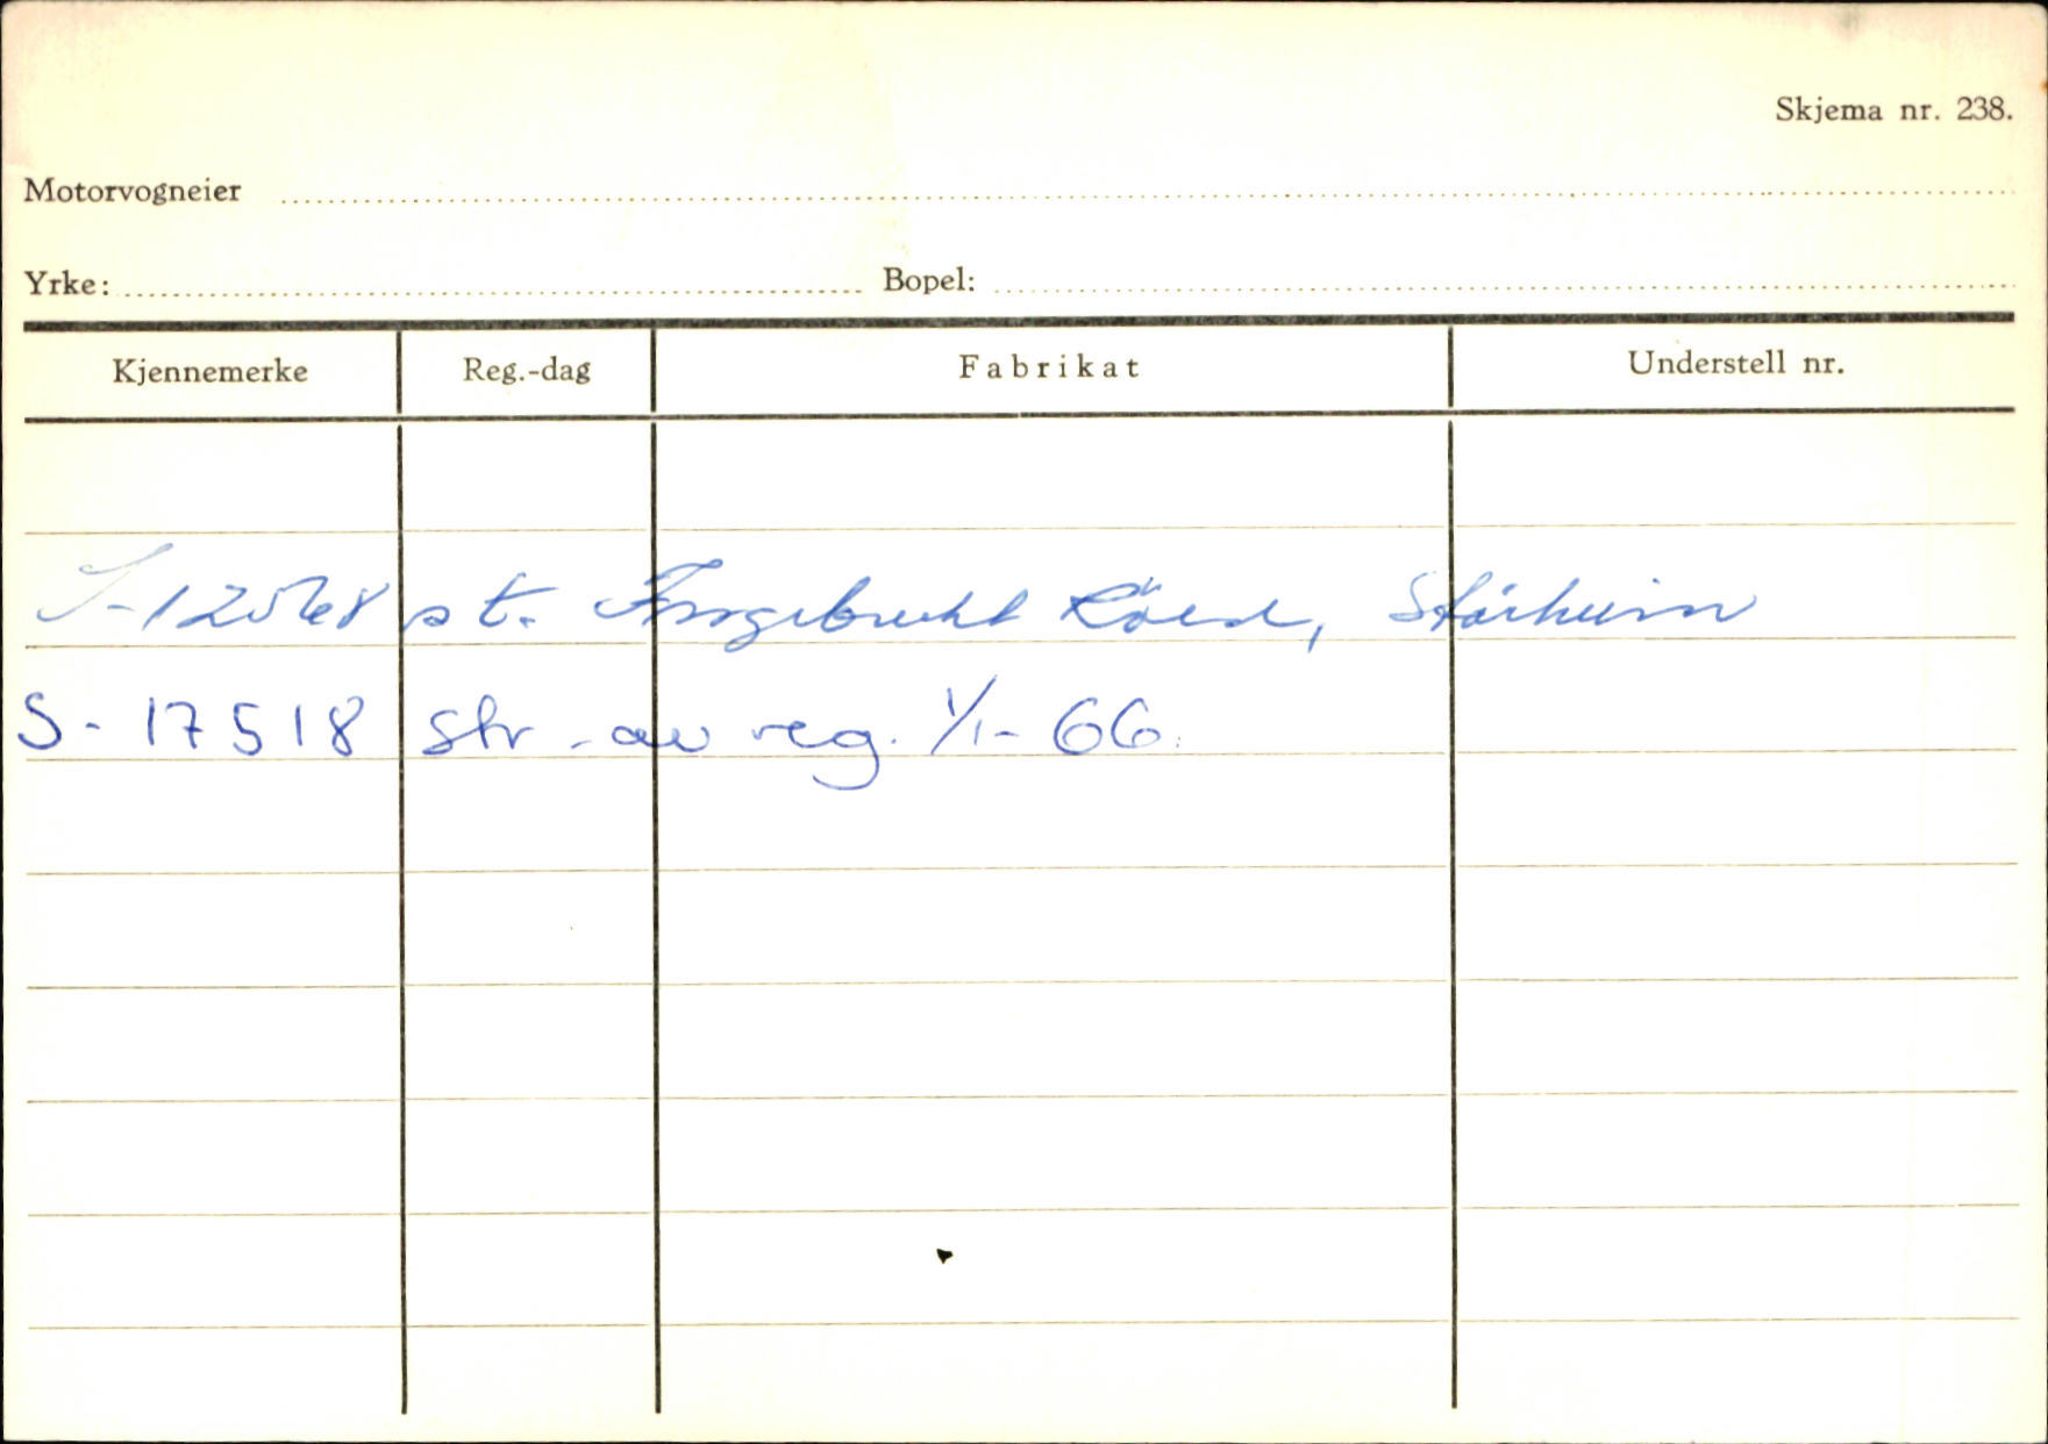 Skjema nr. 238.
Motorvogneier
Yrke: Bopel:
Kjennemerke Reg.-dag Fabrikat Understell nr.
st. Stårheim
S-17518 str. av reg. 1/1-66.